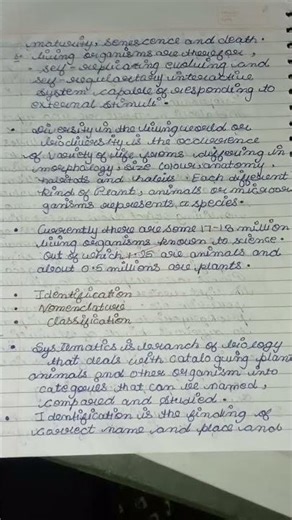 maturity, senescence and death.
living organisms are therefor,
self-replicating evolving and
self regulartory interactive
system capable of responding to
external stimuli.
• diversity in the living world or
biodiversity is the occurrence
of variety of life forms differing in
morphology, size colour anatomy
habitats and habits. Each different
kind of plant, animals or microor
ganisms represents a species.
• Currently there are some 1.7-1.8 million
living organisms known to science.
Out of which 1.25 are animals and
about 0.5 millions are plants.
• Identification
• Nomenclature
• Classification
• Systematics is branch of biology
that deals with cataloguing plants
animals and other organism into
categories that can be named,
compared and studied.
• Identification is the finding of
correct name and place and